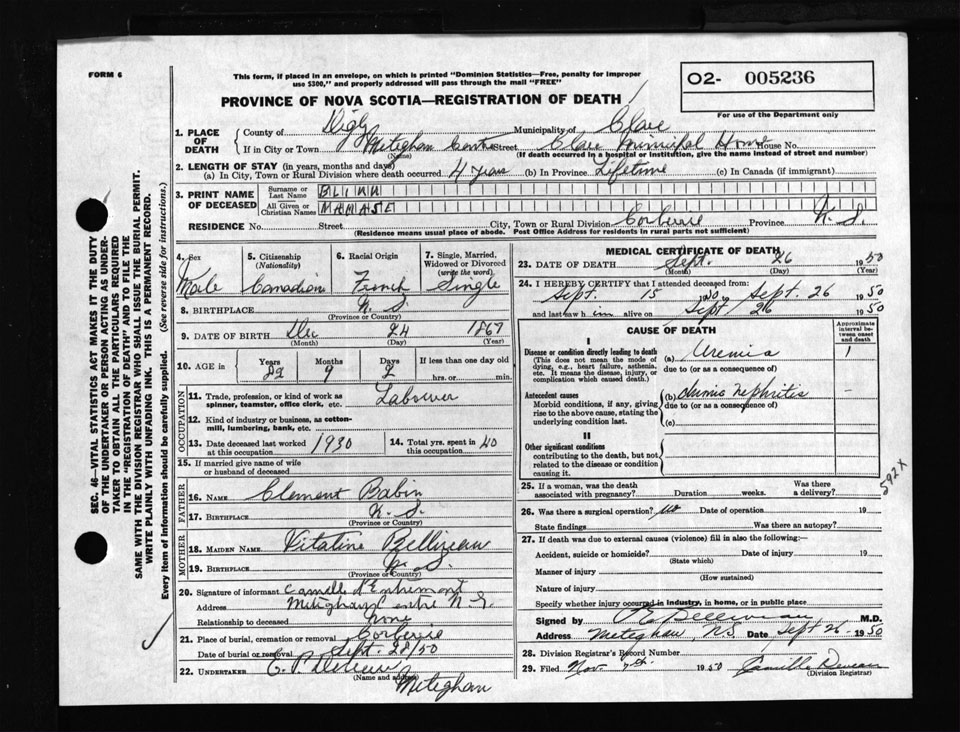 FORM 6
This form, if placed in an envelope, on which is printed "Dominion Statistics—Free, penalty for improper
use $300," and properly addressed will pass through the mail "FREE"
O2- 005236
For use of the Department only
PROVINCE OF NOVA SCOTIA—REGISTRATION OF DEATH
1. PLACE OF DEATH
County of Digby Municipality of Clare
If in City or Town Meteghan Centre Street Clare Municipal Home House No.
(Name) (If death occurred in a hospital or institution, give the name instead of street and number)
2. LENGTH OF STAY (in years, months and days)
(a) In City, Town or Rural Division where death occurred 4 years (b) In Province Lifetime (c) In Canada (if immigrant)
3. PRINT NAME OF DECEASED
Surname or Last Name
All Given or Christian Names
RESIDENCE No. Street City, Town or Rural Division Corberrie Province N.S.
(Residence means usual place of abode. Post Office Address for residents in rural parts not sufficient)
4. Sex Male
5. Citizenship (Nationality) Canadian
6. Racial Origin French
7. Single, Married, Widowed or Divorced (write the word) Single
8. BIRTHPLACE N.S.
(Province or Country)
9. DATE OF BIRTH Dec 24 1867
(Month) (Day) (Year)
10. AGE IN Years Months Days If less than one day
82 9 2 hrs. or min.
OCCUPATION
11. Trade, profession, or kind of work as spinner, teamster, office clerk, etc. Labourer
12. Kind of industry or business, as cotton-mill, lumbering, bank, etc.
13. Date deceased last worked at this occupation 1930
14. Total yrs. spent in this occupation 40
15. If married give name of wife or husband of deceased
FATHER
16. NAME Clement Babin
17. BIRTHPLACE N.S.
(Province or Country)
MOTHER
18. MAIDEN NAME Vitaline Belliveau
19. BIRTHPLACE N.S.
(Province or Country)
20. Signature of informant Camille d'Entremont
Address Meteghan Centre N.S.
Relationship to deceased none
21. Place of burial, cremation or removal Corberrie
Date of burial or removal Sept. 28/50
22. UNDERTAKER
(Name and address)
Meteghan
MEDICAL CERTIFICATE OF DEATH
23. DATE OF DEATH Sept. 26 1950
(Month) (Day) (Year)
24. I HEREBY CERTIFY that I attended deceased from:
Sept. 15 1950 to Sept. 26 1950
and last saw him alive on Sept 26 1950
CAUSE OF DEATH
Approximate interval between onset and death
I
Disease or condition directly leading to death (a) Uremia 1
(This does not mean the mode of dying, e.g., heart failure, asthenia, etc. It means the disease, injury, or complication which caused death.)
due to (or as a consequence of)
Antecedent causes (b) chronic nephritis —
Morbid conditions, if any, giving rise to the above cause, stating the underlying condition last.
due to (or as a consequence of)
(c)
II
Other significant conditions
contributing to the death, but not related to the disease or condition causing it.
592x
25. If a woman, was the death associated with pregnancy? Duration weeks. Was there a delivery?
26. Was there a surgical operation? no Date of operation 19
State findings Was there an autopsy?
27. If death was due to external causes (violence) fill in also the following:
Accident, suicide or homicide? Date of injury 19
(State which)
Manner of injury
(How sustained)
Nature of injury
Specify whether injury occurred in industry, in home, or in public place
Signed by Belliveau M.D.
Address Meteghan, N.S. Date Sept 26 - 1950
28. Division Registrar's Record Number
29. Filed Nov. 7th. 1950 Camille Deveau
(Division Registrar)
SEC. 46—VITAL STATISTICS ACT MAKES IT THE DUTY
OF THE UNDERTAKER OR PERSON ACTING AS UNDERTAKER
TO OBTAIN ALL THE PARTICULARS REQUIRED
IN THE "REGISTRATION OF DEATH" AND TO FILE THE
SAME WITH THE DIVISION REGISTRAR WHO SHALL ISSUE THE BURIAL PERMIT.
WRITE PLAINLY WITH UNFADING INK. THIS IS A PERMANENT RECORD.
Every item of information should be carefully supplied. (See reverse side for instructions.)